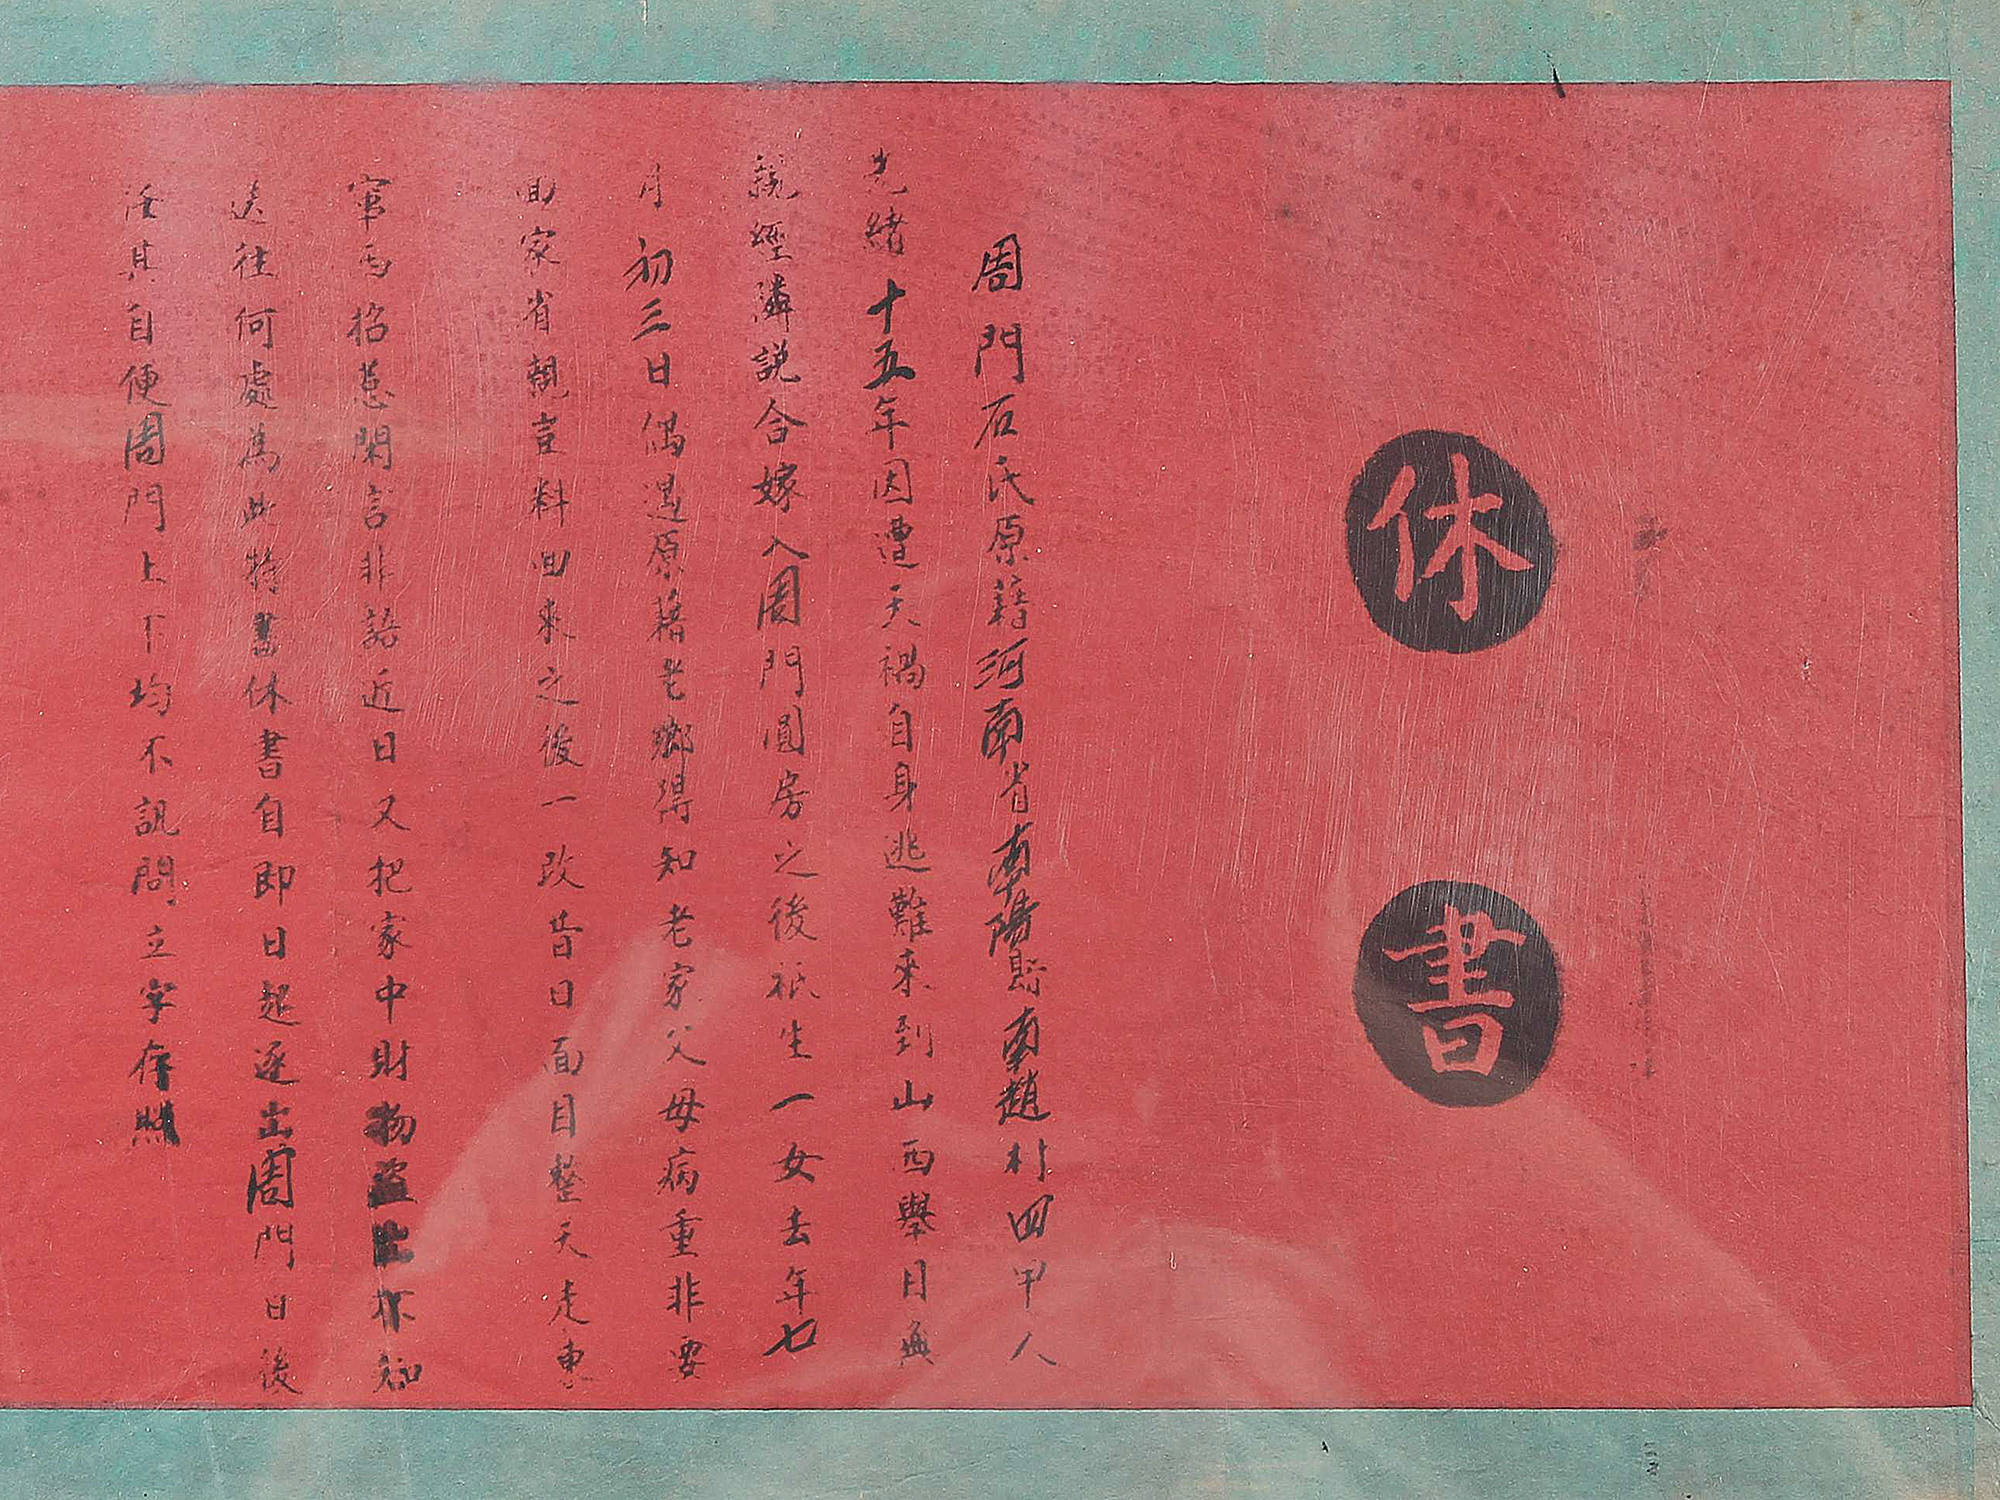 休書
周門石氏原籍河南省南陽縣南趙村四甲人
光緒十五年因遭天禍自身逃難來到山西舉目無
親經隣説合嫁入周門圓房之後祇生一女去年七
月初三日偶遇原藉老鄉得知老家父母病重非要
回家省親豈料回來之後一改昔日面目整天走東
竄西招惹閑言非語近日又把家中財物盗出不知
送往何處為此特書休書自即日起逐出周門日後
任其自便周門上下均不訊問立字存照